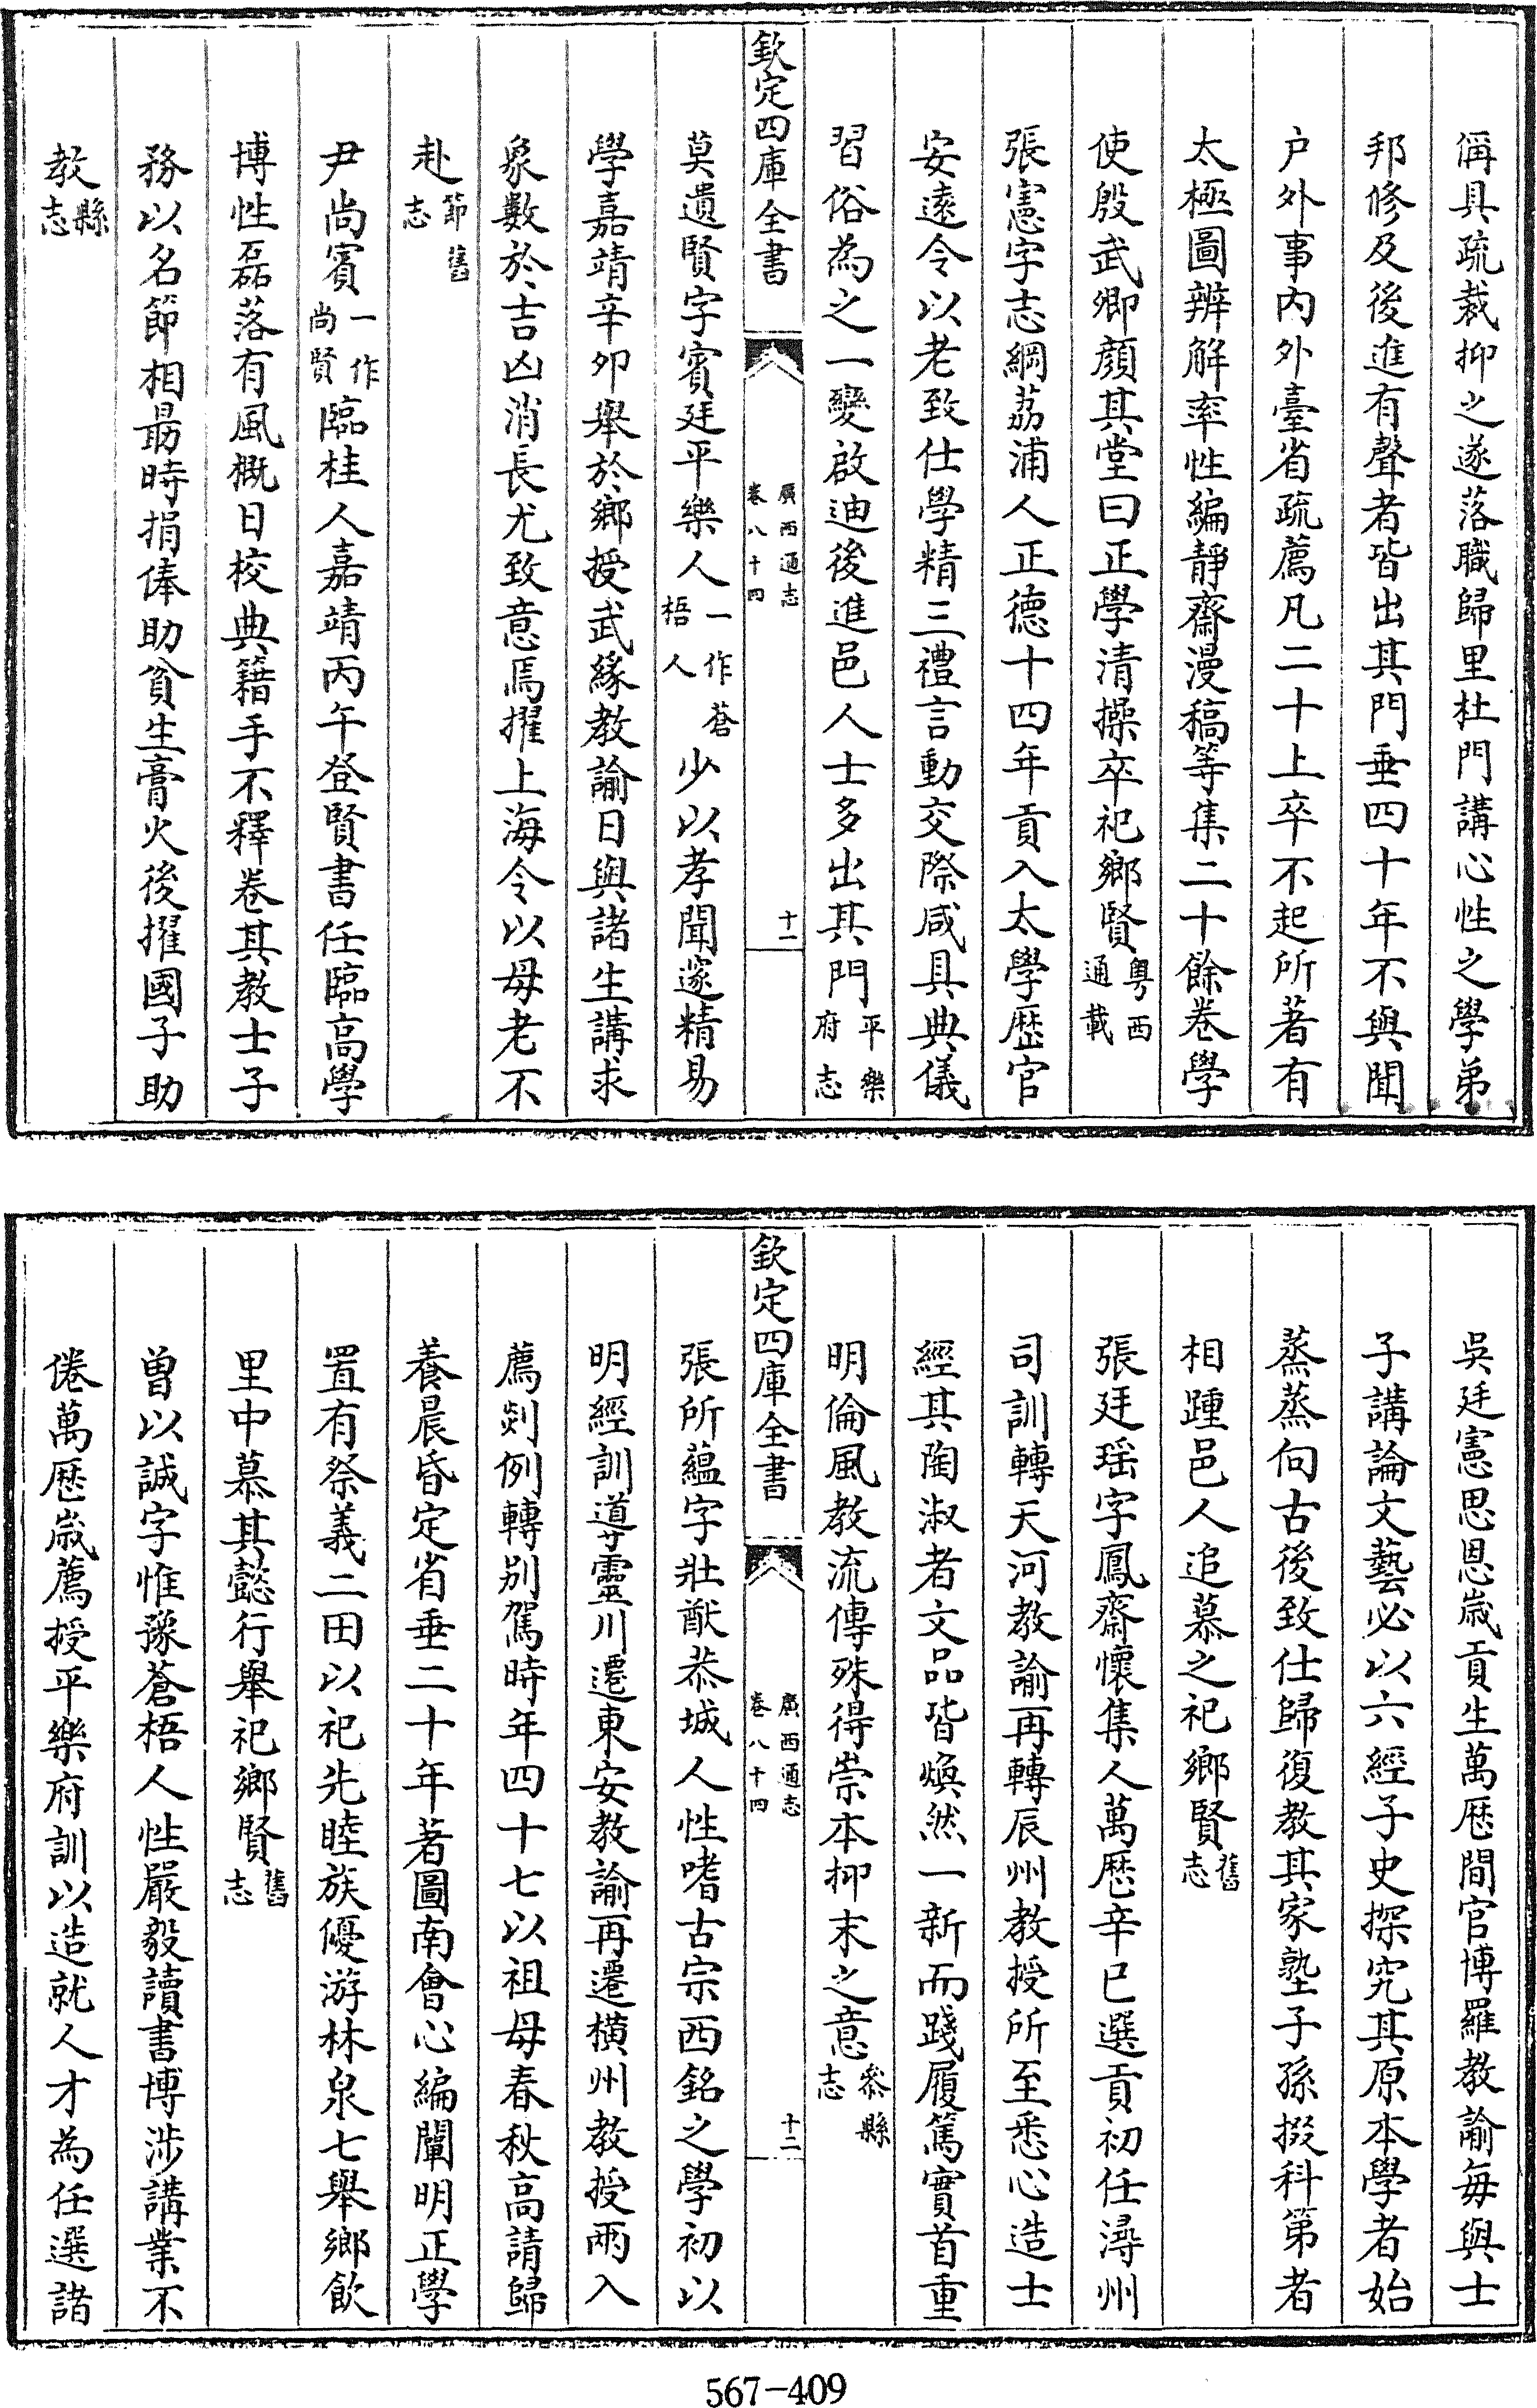 偁具疏裁抑之遂落職歸里杜門講心性之學弟
邦修及後進有聲者皆出其門垂四十年不與聞
户外事内外臺省疏薦凡二十上卒不起所著有
太極圖辨解率性編靜齋漫稿等集二十餘卷學
使殷武卿顔其堂曰正學清操卒祀鄉賢粤西通載
張憲字志綱荔浦人正德十四年貢入太學歷官
安遠令以老致仕學精三禮言動交際咸具典儀
習俗為之一變啟迪後進邑人士多出其門平樂府志
欽定四庫全書
廣西通志
卷八十四
十一
莫遺賢字賓廷平樂人一作蒼梧人少以孝聞邃精易
學嘉靖辛卯舉於鄉授武緣教諭日與諸生講求
象數於吉凶消長尤致意焉擢上海令以母老不
赴節舊志
尹尚賓一作尚賢臨桂人嘉靖丙午登賢書任臨高學
博性磊落有風概日校典籍手不釋卷其教士子
務以名節相朂時捐俸助貧生膏火後擢國子助
教縣志
吳廷憲思恩歲貢生萬厯間官博羅教諭每與士
子講論文藝必以六經子史探究其原本學者始
蒸蒸向古後致仕歸復教其家塾子孫掇科第者
相踵邑人追慕之祀鄉賢舊志
張廷瑶字鳳齋懷集人萬厯辛巳選貢初任潯州
司訓轉天河教諭再轉辰州教授所至悉心造士
經其陶淑者文品皆煥然一新而踐履篤實首重
明倫風教流傳殊得崇本抑末之意叅縣志
欽定四庫全書
廣西通志
卷八十四
十二
張所蘊字壯猷恭城人性嗜古宗西銘之學初以
明經訓導靈川遷東安教諭再遷橫州教授兩入
薦剡例轉别駕時年四十七以祖母春秋高請歸
養晨昏定省垂二十年著圖南會心編闡明正學
置有祭義二田以祀先睦族優游林泉七舉鄉飲
里中慕其懿行舉祀鄉賢舊志
曾以誠字惟豫蒼梧人性嚴毅讀書博涉講業不
倦萬厯歲薦授平樂府訓以造就人才為任選諸
567-409